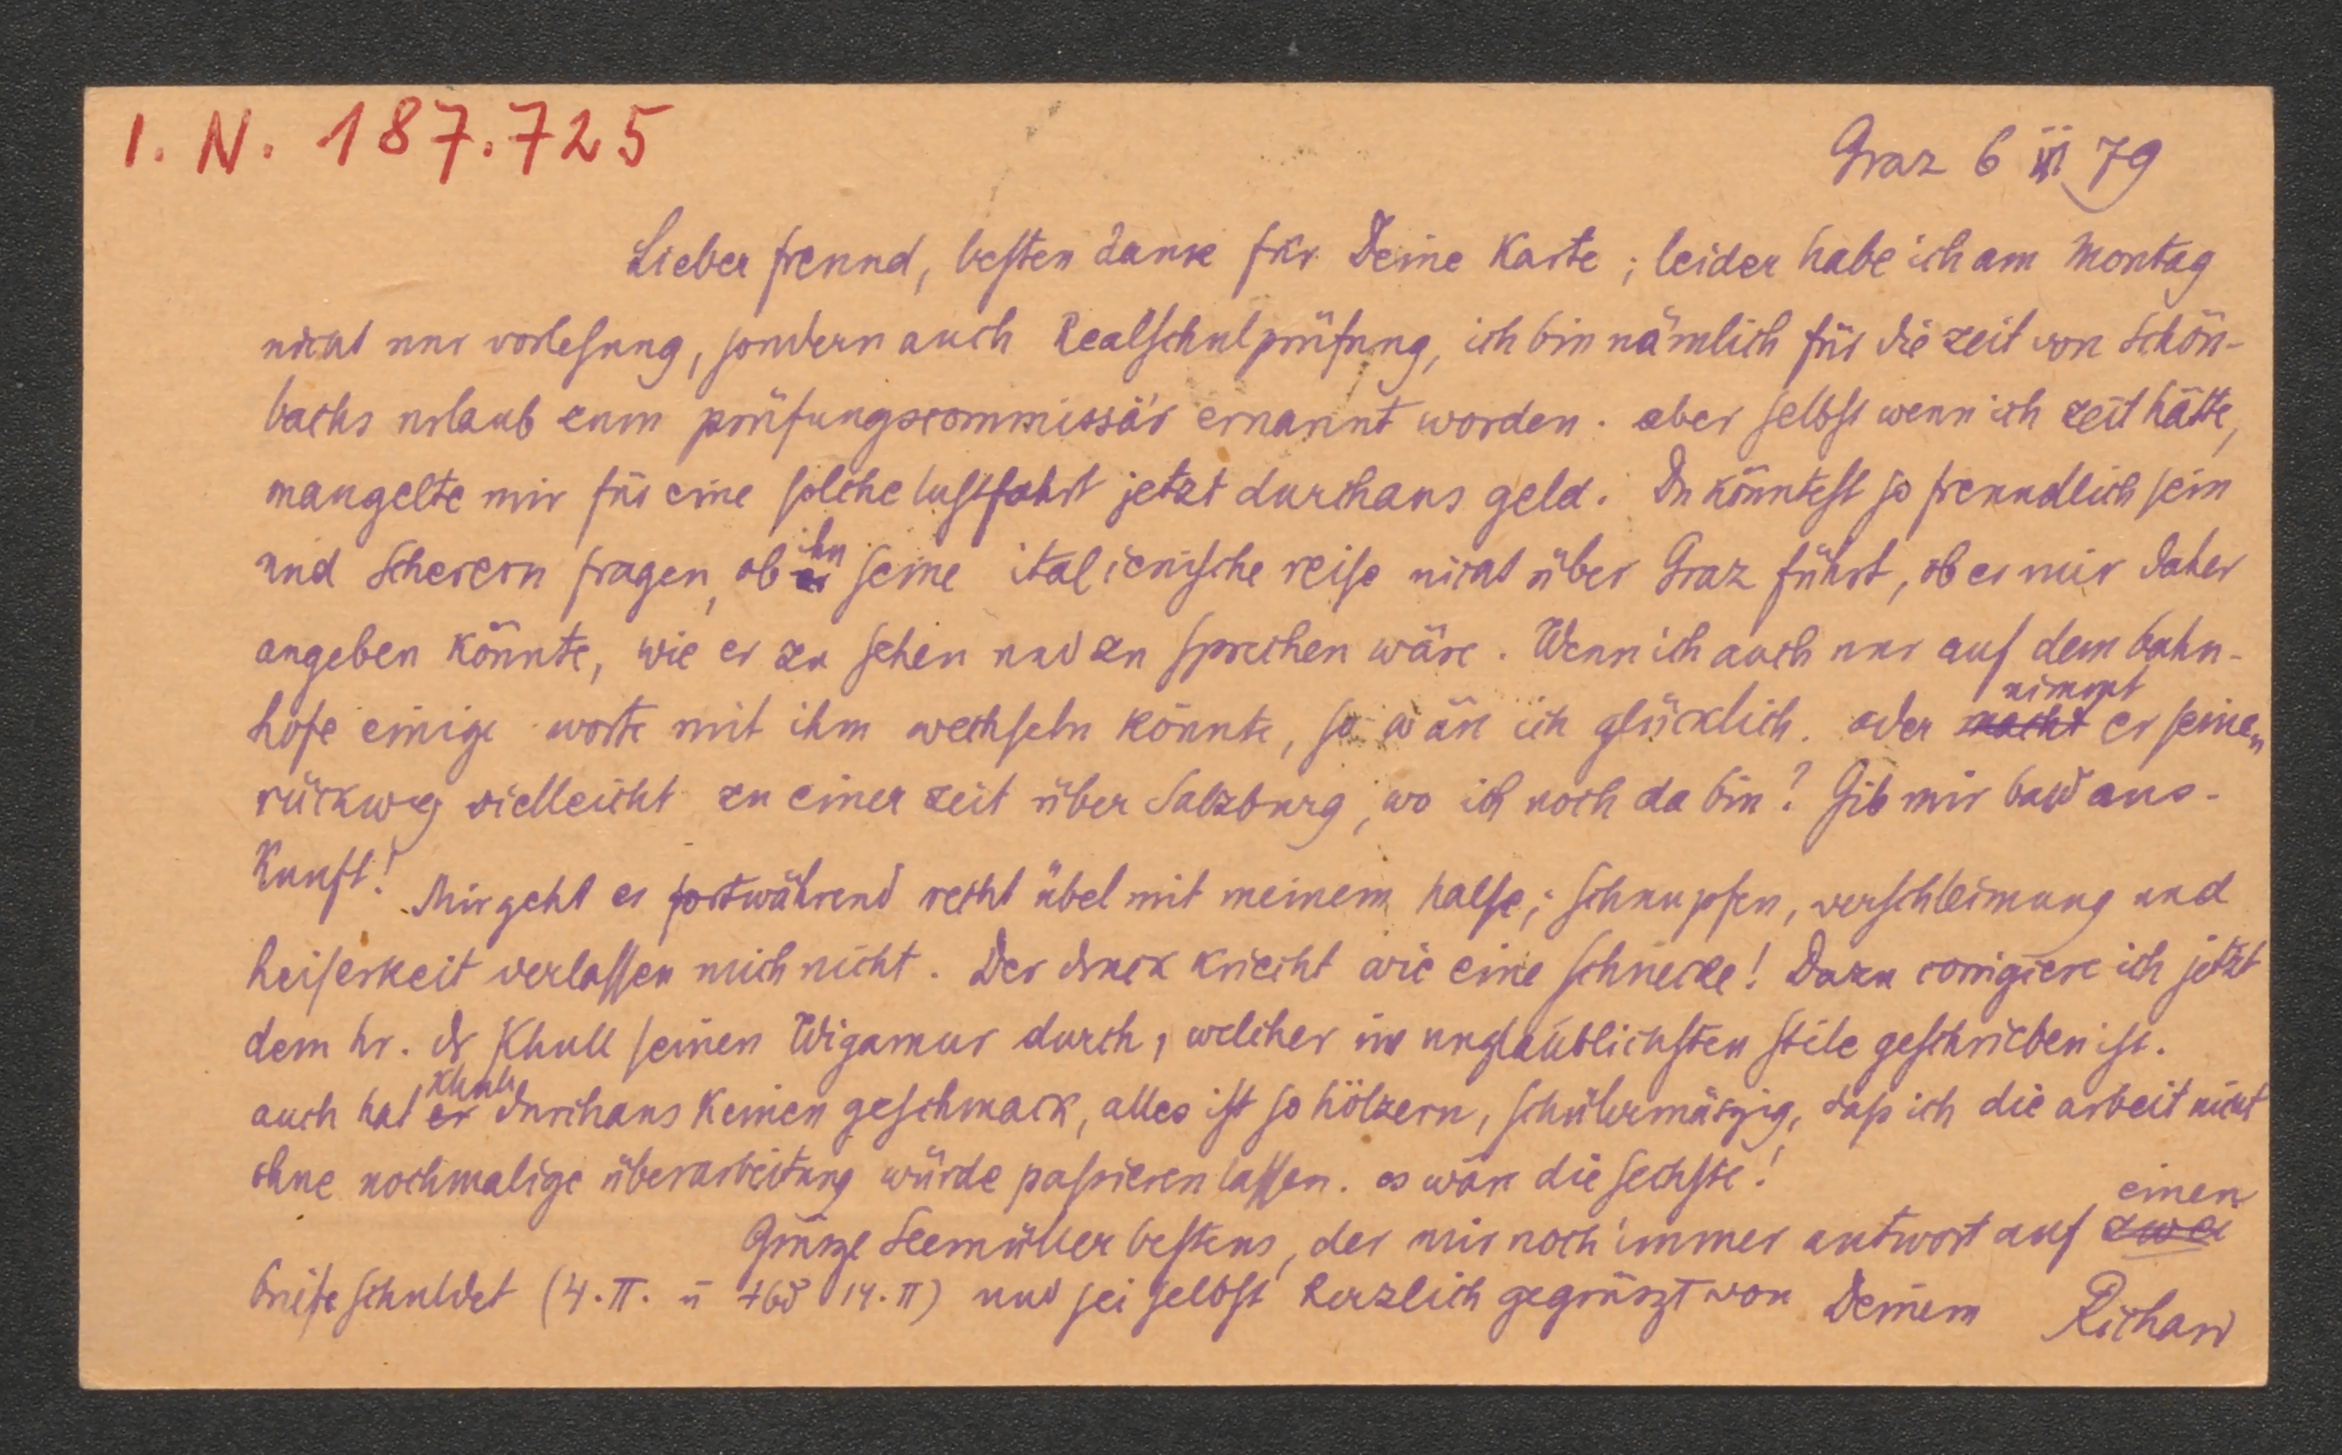 I. N. 187.725
Graz 6 iii 79
Lieber freund, besten dank für Deine karte; leider habe ich am Montag
nicht nur vorlesung, sondern auch Realschulprüfung, ich bin nämlich für die zeit von Schön-
bachs urlaub zum prüfungscommissär ernannt worden. aber selbst wenn ich zeit hätte,
mangelte mir für eine solche lustfahrt jetzt durchaus geld. Du könntest so freundlich sein
und Scherern fragen, ob er ihn seine italienische reise nicht über Graz führt, ob er mir daher
angeben könnte, wie er zu sehen und zu sprechen wäre. Wenn ich auch nur auf dem bahn-
hofe einige worte mit ihm wechseln könnte, so wäre ich glücklich. oder macht nimmt er seinen
rückweg vielleicht zu einer zeit über Salzburg, wo ich noch da bin? Gib mir bald aus-
kunft! Mir geht es fortwährend recht übel mit meinem halse; schnupfen, verschleimung und
heiserkeit verlassen mich nicht. Der druck kriecht wie eine schnecke! Dazu corrigiere ich jetzt
dem hr. dr Khull seinen Wigamur durch, welcher im unglaublichsten stile geschrieben ist.
auch hat er Khull durchaus keinen geschmack, alles ist so hölzern, schülermäszig, dass ich die arbeit nicht
ohne nochmalige überarbeitung würde passieren lassen. es wäre die sechste!
Grüsze Seemüller bestens, der mir noch immer antwort auf zwei einen
briefe schuldet (4. II. u 14. II) und sei selbst herzlich gegrüszt von Deinem Richard